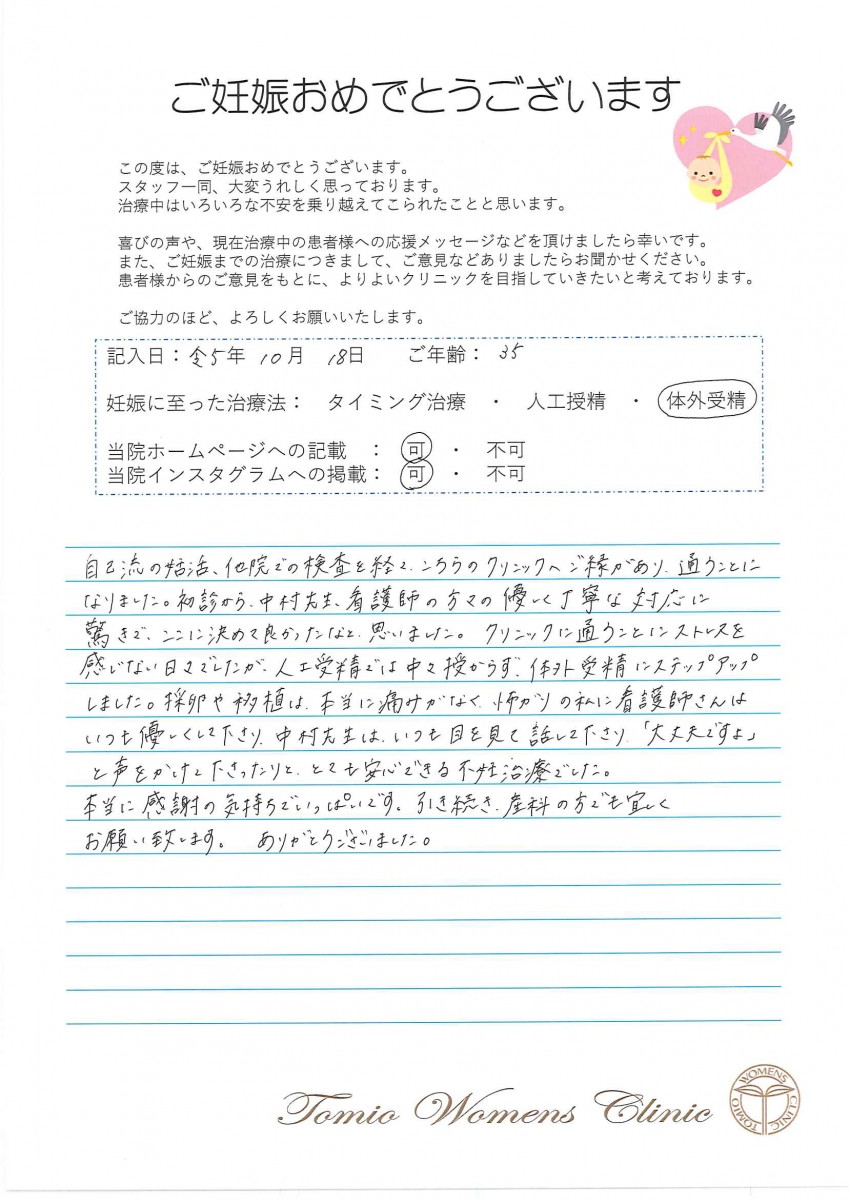 ご妊娠おめでとうございます
この度は、ご妊娠おめでとうございます。
スタッフ一同、大変うれしく思っております。
治療中はいろいろな不安を乗り越えてこられたことと思います。
喜びの声や、現在治療中の患者様への応援メッセージなどを頂けましたら幸いです。
また、ご妊娠までの治療につきまして、ご意見などありましたらお聞かせください。
患者様からのご意見をもとに、よりよいクリニックを目指していきたいと考えております。
ご協力のほど、よろしくお願いいたします。
記入日：令5年 10月 18日 ご年齢：35
妊娠に至った治療法： タイミング治療 ・ 人工授精 ・ 体外受精
当院ホームページへの記載 ： 可 ・ 不可
当院インスタグラムへの掲載： 可 ・ 不可
自己流の妊活、他院での検査を経て、こちらのクリニックへご縁があり、通うことに
なりました。初診から、中村先生、看護師の方々の優しく丁寧な対応に
驚きで、ここに決めて良かったなと、思いました。クリニックに通うことにストレスを
感じない日々でしたが、人工受精では中々授からず、体外受精にステップアップ
しました。採卵や移植は、本当に痛みがなく、怖がりの私に看護師さんは
いつも優しくして下さり、中村先生は、いつも目を見て話して下さり、「大丈夫ですよ」
と声をかけて下さったりと、とても安心できる不妊治療でした。
本当に感謝の気持ちでいっぱいです。引き続き、産科の方でも宜しく
お願い致します。 ありがとうございました。
Tomio Womens Clinic
TOMIO WOMENS CLINIC